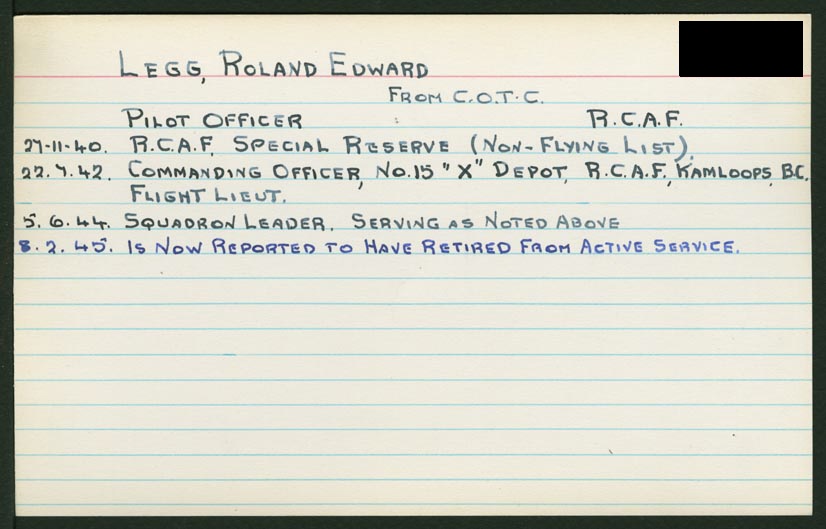 LEGG, ROLAND EDWARD
FROM C.O.T.C.
PILOT OFFICER R.C.A.F.
27-11-40. R.C.A.F. SPECIAL RESERVE (NON-FLYING LIST).
22.7.42. COMMANDING OFFICER, NO.15 "X" DEPOT, R.C.A.F., KAMLOOPS, B.C.
FLIGHT LIEUT.
5.6.44. SQUADRON LEADER. SERVING AS NOTED ABOVE
8.2.45. IS NOW REPORTED TO HAVE RETIRED FROM ACTIVE SERVICE.